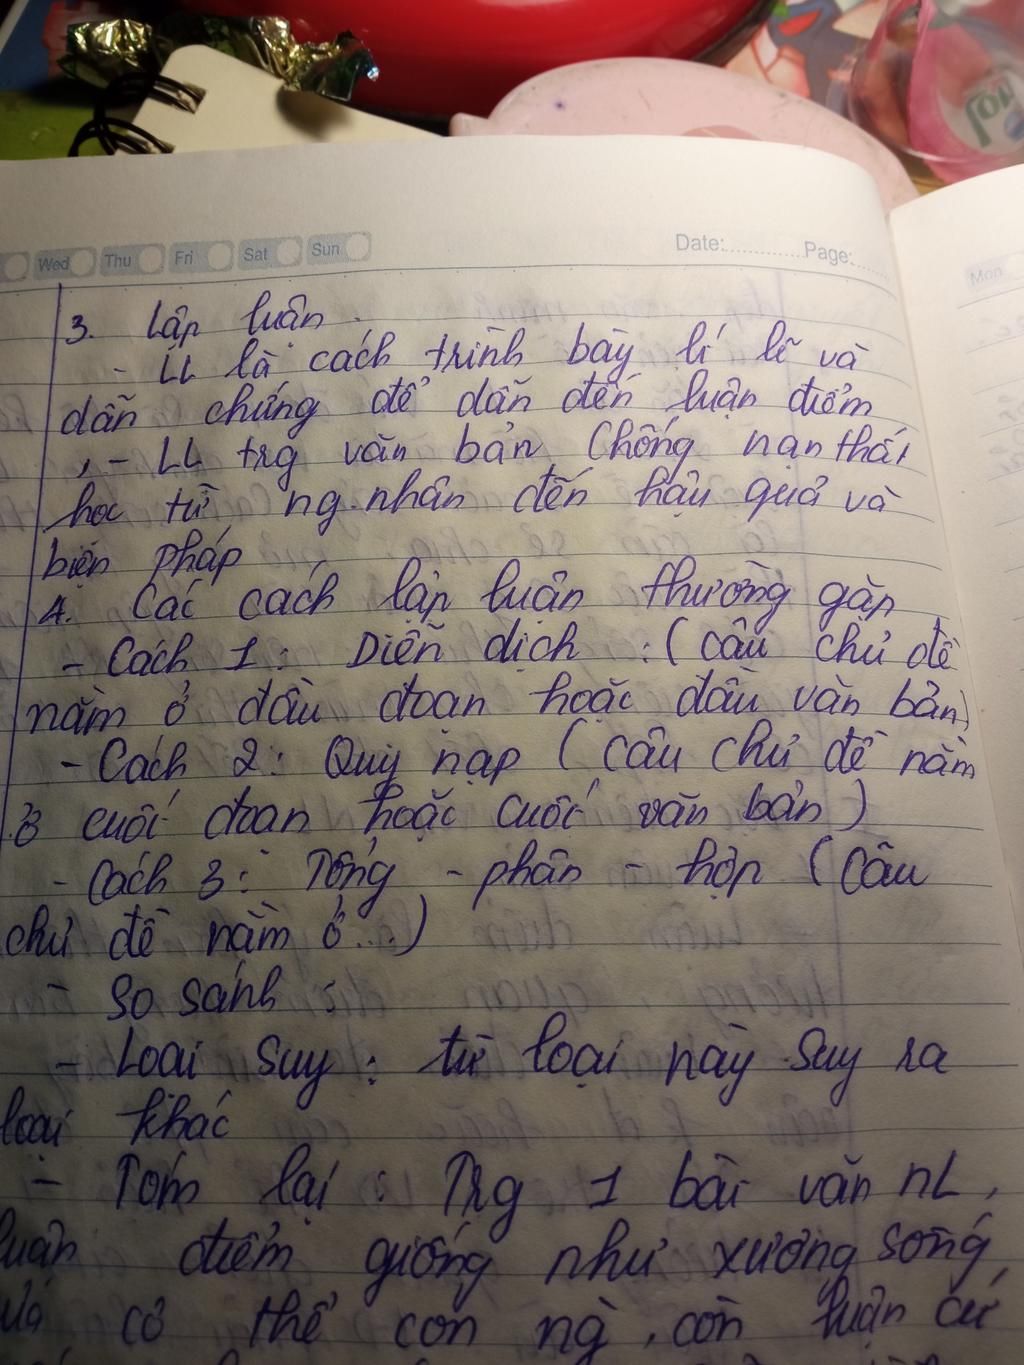 Wed Thu Fri Sat Sun Date: Page:
Mon
3. Lập luận.
- LL là cách trình bày lí lẽ và
dẫn chứng để dẫn đến luận điểm
- LL trg văn bản Chống nạn thất
học từ ng.nhân đến hậu quả và
biện pháp
4. Các cách lập luận thường gặp
- Cách 1: Diễn dịch : (câu chủ đề
nằm ở đầu đoạn hoặc đầu văn bản)
- Cách 2: Quy nạp (câu chủ đề nằm
ở cuối đoạn hoặc cuối văn bản)
- Cách 3: Tổng - phân - hợp (câu
chủ đề nằm ở...)
- So sánh :
- Loại suy : từ loại này suy ra
loại khác
- Tóm lại : Trg 1 bài văn nL,
luận điểm giống như xương sống
của cơ thể con ng, còn luận cứ